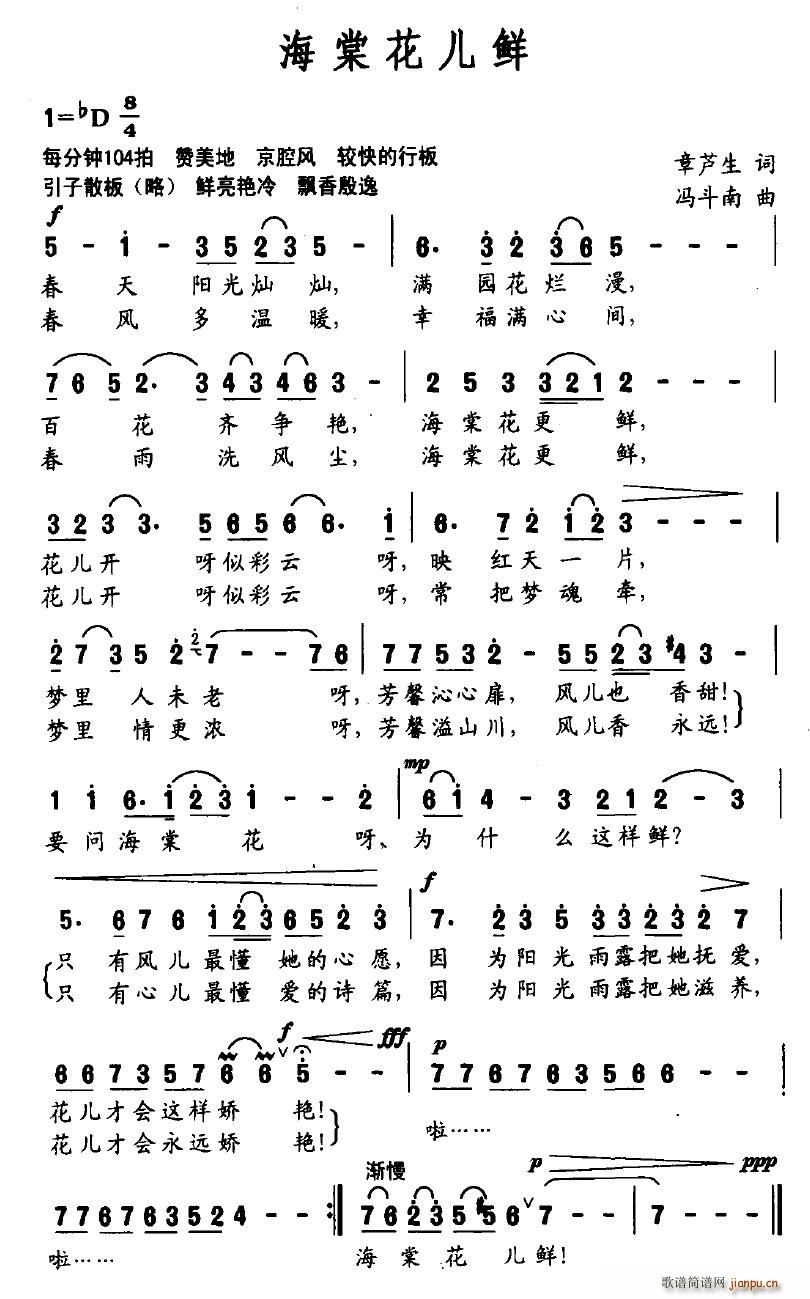 海棠花儿鲜
1=♭D 8/4
每分钟104拍 赞美地 京腔风 较快的行板
章芦生 词
引子散板（略） 鲜亮艳冷 飘香殷逸
冯斗南 曲
f
5 - i - 3 5 2 3 5 - | 6. 3 2 3 6 5 - - - |
春天阳光灿灿, 满园花烂漫,
春风多温暖, 幸福满心间,
7 6 5 2. 3 4 3 4 6 3 - | 2 5 3 3 2 1 2 - - - |
百花齐争艳, 海棠花更鲜,
春雨洗风尘, 海棠花更鲜,
3 2 3 3. 5 6 5 6 6. i | 6. 7 2 i 2 3 - - - |
花儿开 呀似彩云 呀, 映红天一片,
花儿开 呀似彩云 呀, 常把梦魂牵,
2 7 3 5 2 2 7 - - 7 6 | 7 7 5 3 2 - 5 5 2 3 #4 3 - |
梦里人未老 呀, 芳馨沁心扉, 风儿也香甜!
梦里情更浓 呀, 芳馨溢山川, 风儿香永远!
mp
1 i 6. i 2 3 i - - 2 | 6 i 4 - 3 2 1 2 - 3 |
要问海棠花 呀、为什么这样鲜?
f
5. 6 7 6 i 2 3 6 5 2 3 | 7. 2 3 5 3 3 2 3 2 7 |
只有风儿最懂她的心愿, 因为阳光雨露把她抚爱,
只有心儿最懂爱的诗篇, 因为阳光雨露把她滋养,
f fff p
6 6 7 3 5 7 6 6 5 - - | 7 7 6 7 6 3 5 6 - - |
花儿才会这样娇艳!
花儿才会永远娇艳!
啦……
渐慢 p ppp
7 7 6 7 6 3 5 2 4 - - :| 7 6 2 3 5 #5 6 7 - - | 7 - - - |
啦…… 海棠花儿鲜!
歌谱简谱网
jianpu.cn